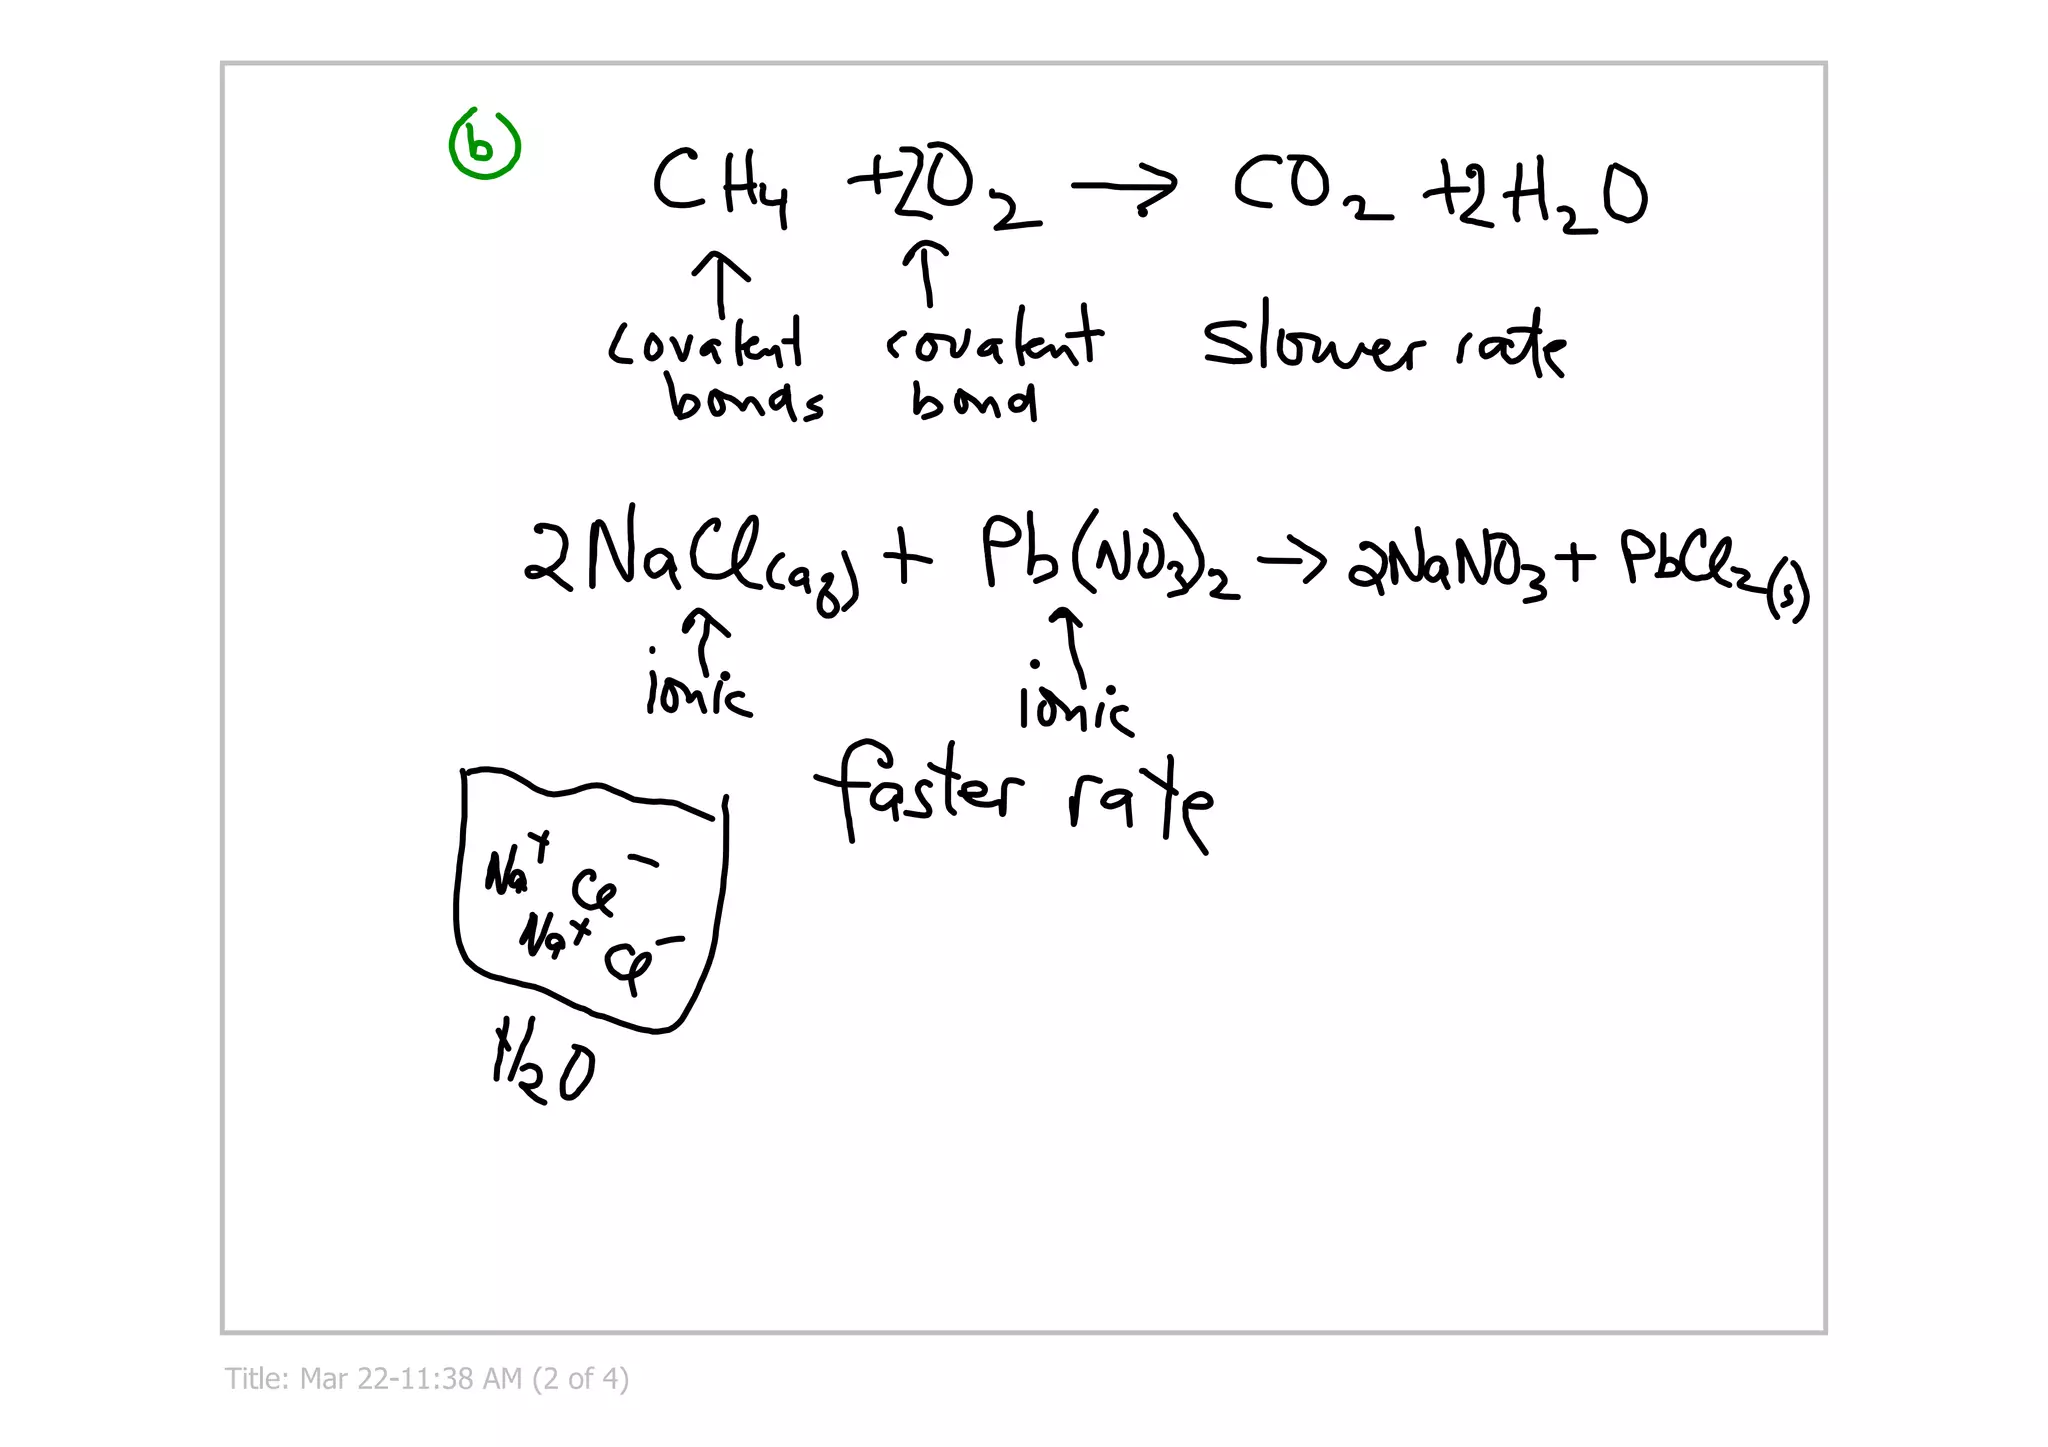 b
CH₄ + 2O₂ → CO₂ + 2H₂O
↑ ↑
covalent covalent slower rate
bonds bond
2NaCl(aq) + Pb(NO₃)₂ → 2NaNO₃ + PbCl₂(s)
↑ ↑
ionic ionic
faster rate
Na⁺ Cl⁻
Na⁺ Cl⁻
H₂O
Title: Mar 22-11:38 AM (2 of 4)